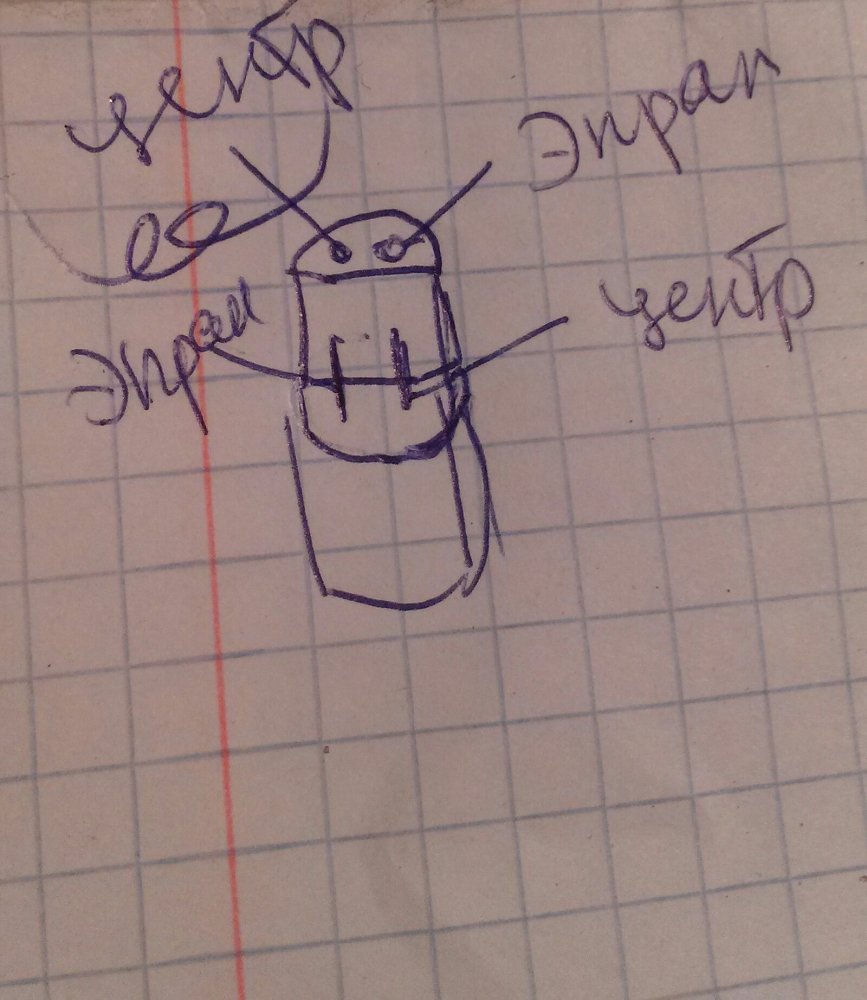 центр
Экран
центр
Экран